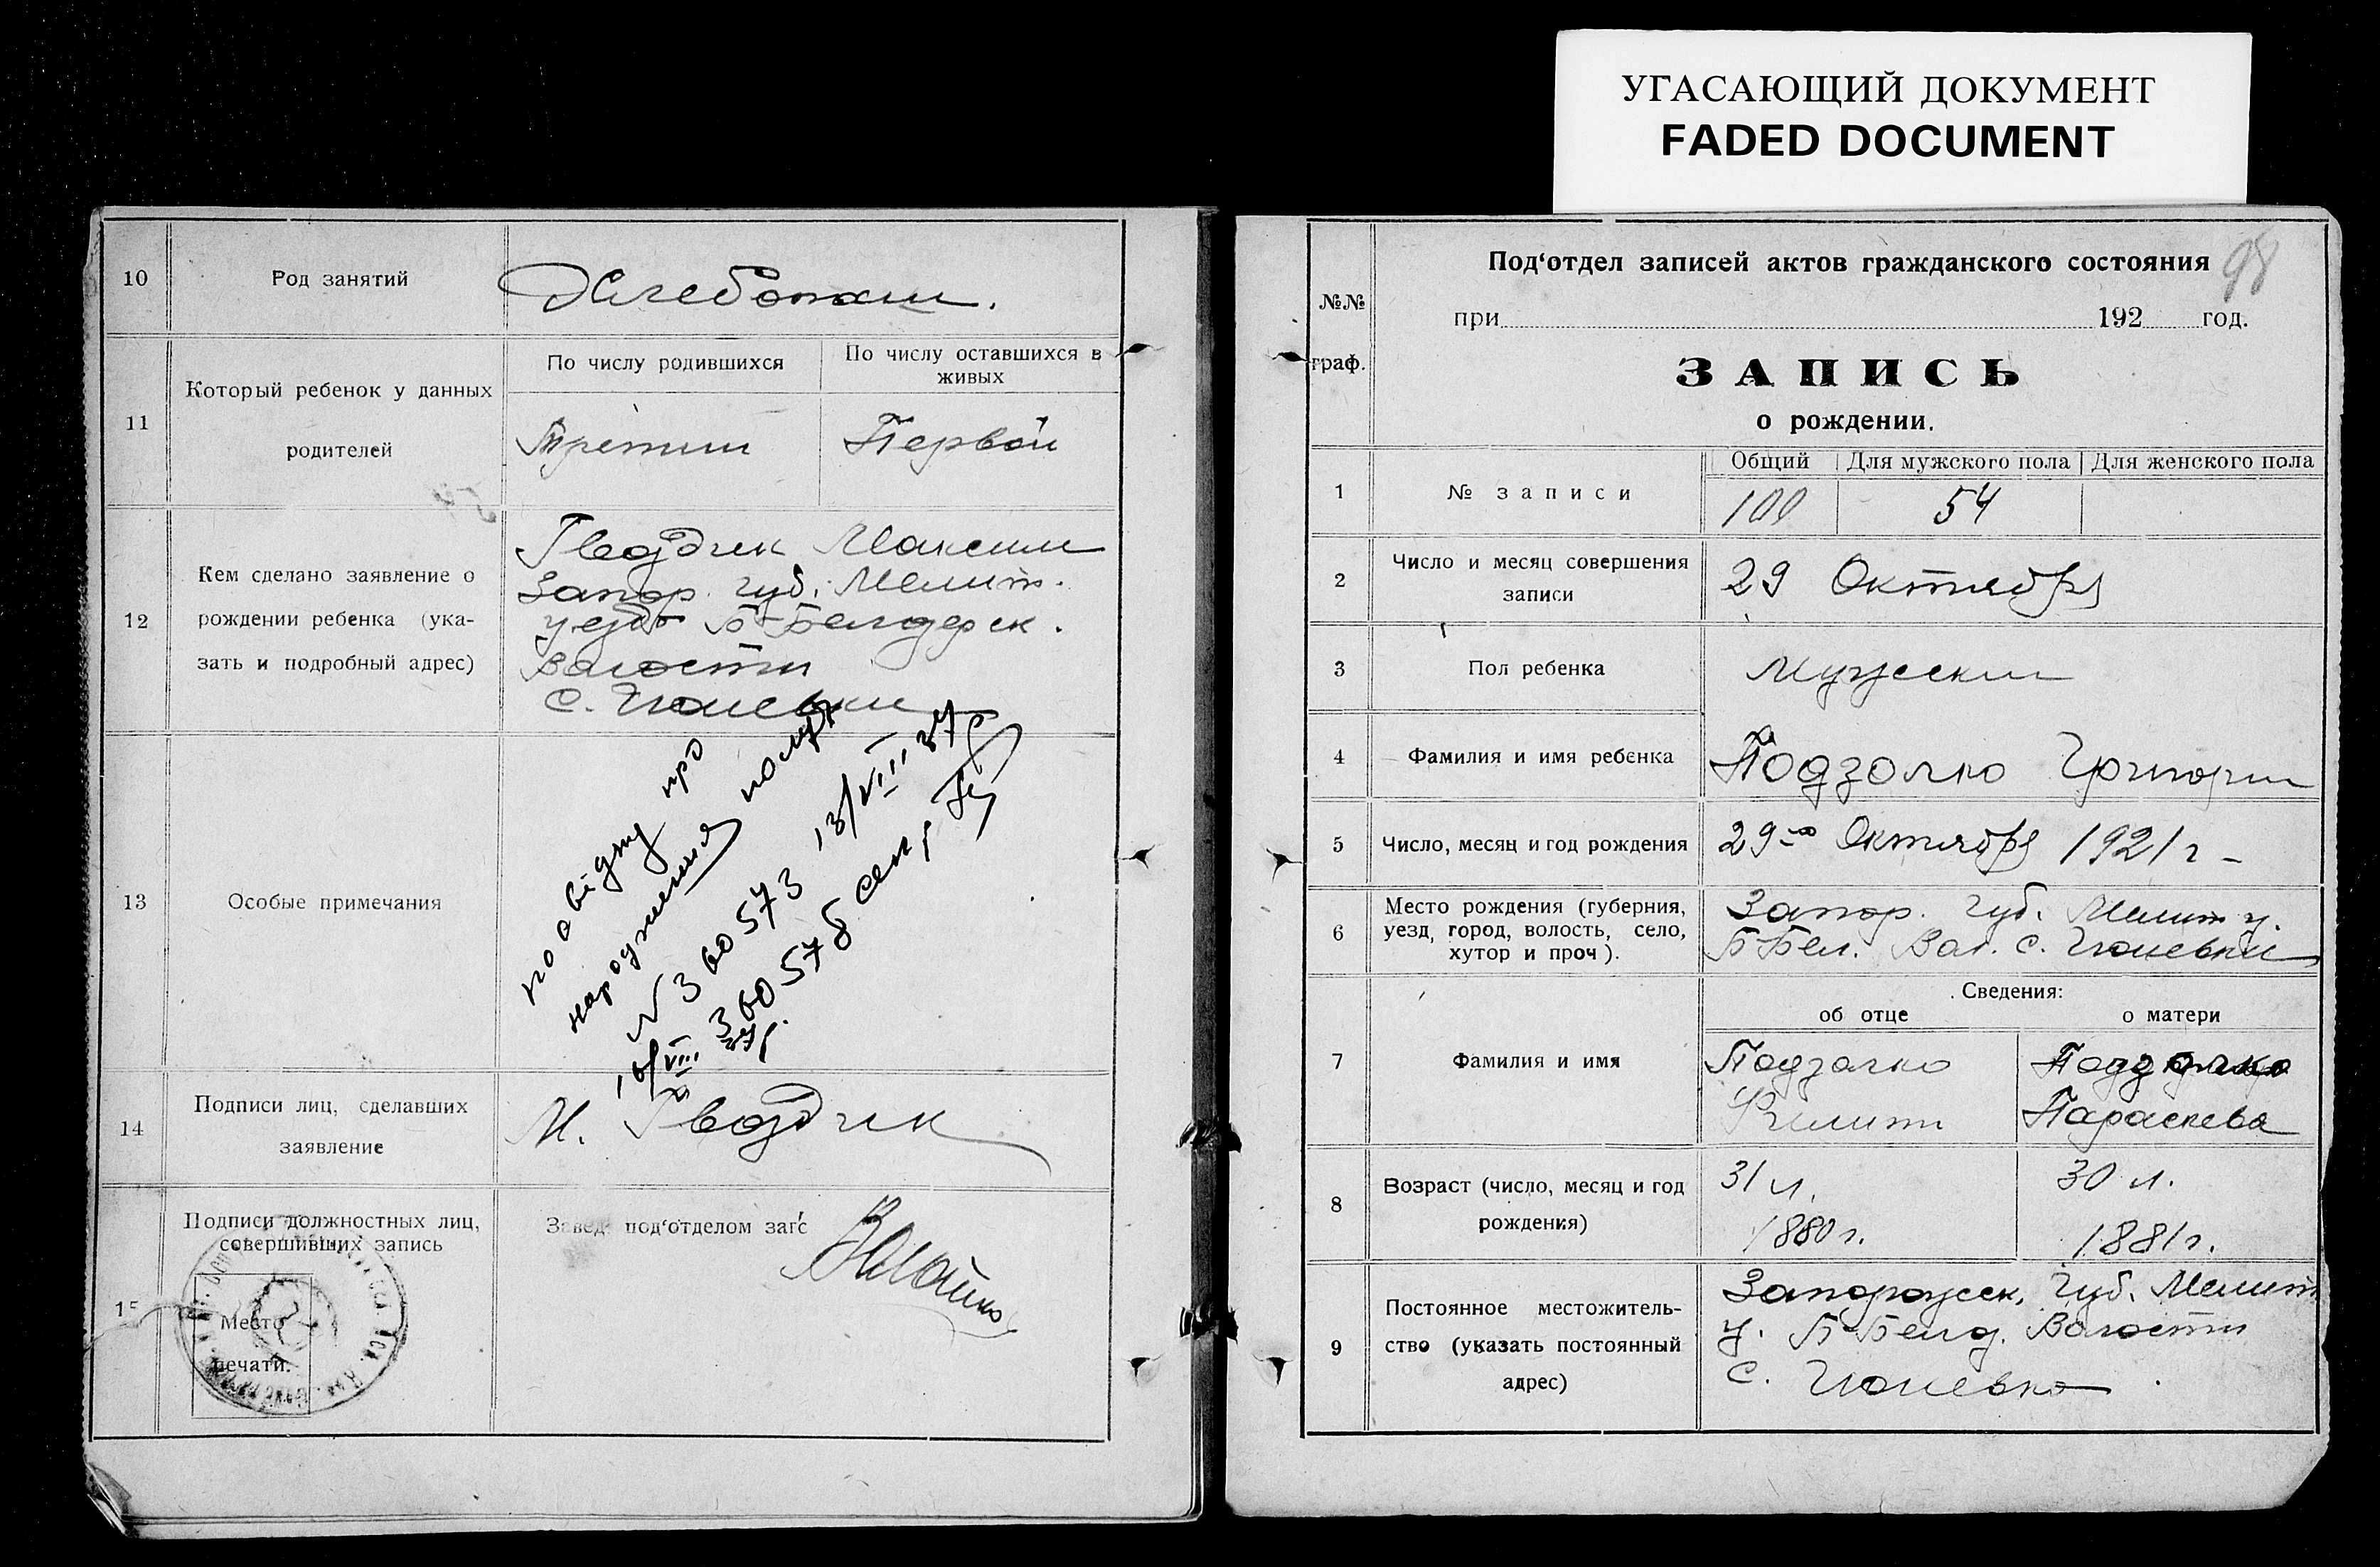 УГАСАЮЩИЙ ДОКУМЕНТ
FADED DOCUMENT
10
Род занятий
Хлебопаш.
11
Который ребенок у данных
родителей
По числу родившихся
По числу оставшихся в
живых
Третий
Первой
12
Кем сделано заявление о
рождении ребенка (ука-
зать и подробный адрес)
Гвоздик Максим
Запор. губ. Мелит.
уезд Б-Белозерск.
Волости
с. Гюневки
13
Особые примечания
про
народження
№ 360573 13/VIII 37р
360578
16/VIII 37р.
14
Подписи лиц, сделавших
заявление
М. Гвоздик
15
Подписи должностных лиц,
совершивших запись
Место
печати.
Завед. под‘отделом загс
98
№№
граф.
Под‘отдел записей актов гражданского состояния
при 192 год.
ЗАПИСЬ
о рождении.
1
№ записи
Общий
Для мужского пола
Для женского пола
100
54
2
Число и месяц совершения
записи
29 Октября
3
Пол ребенка
мужский
4
Фамилия и имя ребенка
Подзолко Григорий
5
Число, месяц и год рождения
29-го Октября 1921 г-
6
Место рождения (губерния,
уезд, город, волость, село,
хутор и проч).
Запор. губ. Мелит у.
Б-Бел. Вол. с. Гюневки
7
Фамилия и имя
Сведения:
об отце
о матери
Подзолко
Филипп
Подзолко
Параскева
8
Возраст (число, месяц и год
рождения)
31 л.
1880 г.
30 л.
1881 г.
9
Постоянное местожитель-
ство (указать постоянный
адрес)
Запорожск. Губ. Мелит
у. Б-Белоз. Волости
с. Гюневка